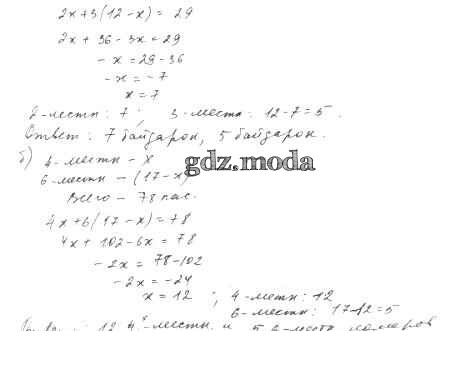 2x+3(12-x)= 29
2x + 36 - 3x = 29
- x = 29-36
-x = -7
x = 7
2-местн: 7; 3-местн: 12-7=5.
Ответ: 7 байдарок, 5 байдарок.
б) 4-местн - x
gdz.moda
6-местн - (17-x)
Всего - 78 пас.
4x+6(17-x)=78
4x + 102-6x = 78
-2x = 78-102
-2x = -24
x = 12; 4-местн: 12
6-местн: 17-12=5
12 4-местн. и 5 номеров